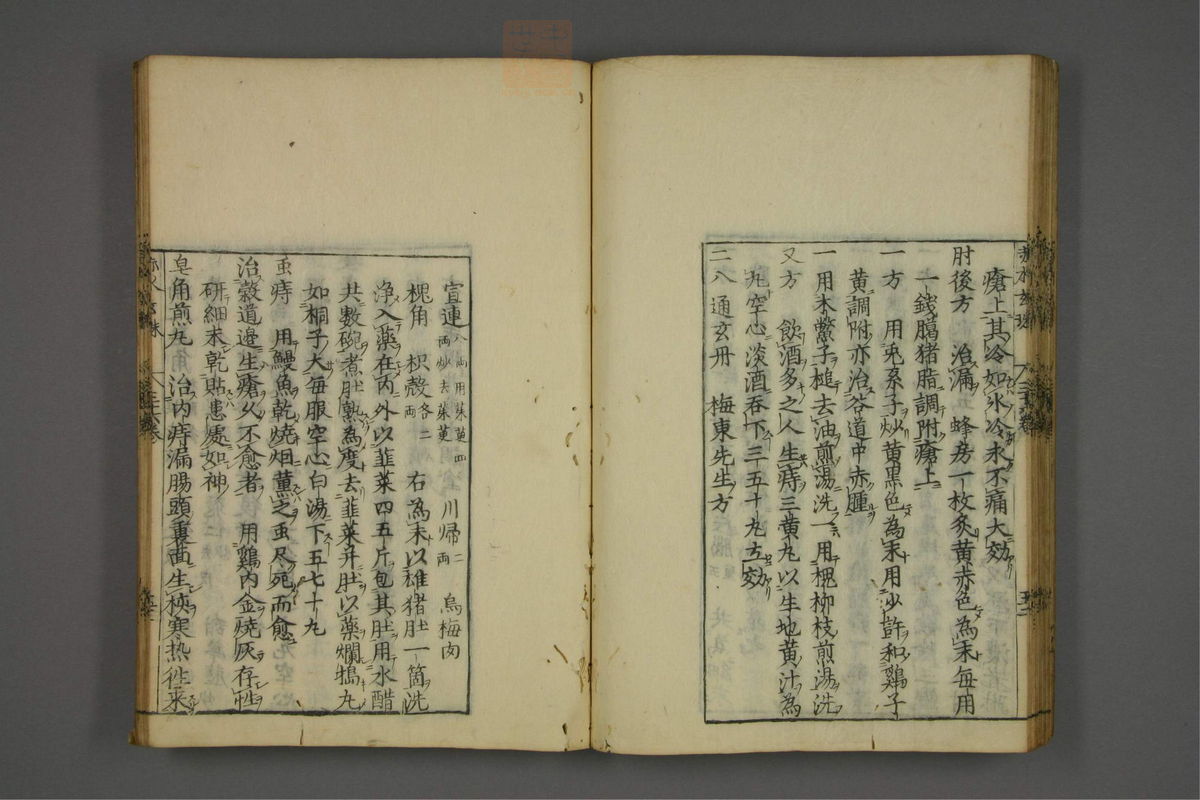 瘡上其冷如氷冷永不痛大効
肘後方 治漏 蜂房一枚炙黄赤色為末每用
一錢臈猪脂調附瘡上
一方 用兎糸子炒黄黒色為末用少許和鷄子
黄調附亦治谷道中赤腫
一用木鱉子槌去油煎湯洗一用槐柳枝煎湯洗
又方 飲酒多之人生痔三黄丸以生地黄汁為
丸空心淡酒吞下三五十丸立効
二八通玄丹 梅東先生方
宣連八両用茱萸四両炒去茱萸 川帰二両 烏梅肉
槐角 枳殻各二両 右為末以雄猪肚一箇洗
浄入薬在内外以韮菜四五斤包其肚用水醋
共數碗煮肚熟為度去韮菜并肚以薬爛搗丸
如桐子大每服空心白湯下五七十丸
虫痔 用鰻魚乾焼烟薫之虫尽死而愈
治穀道邉生瘡久不愈者 用鷄内金焼灰存性
研細末乾貼患處如神
皂角煎丸 治内痔漏腸頭裏面生核寒热徃来